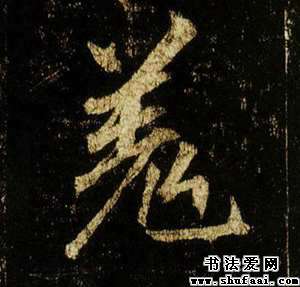 羌
书法爱网
www.shufaai.com